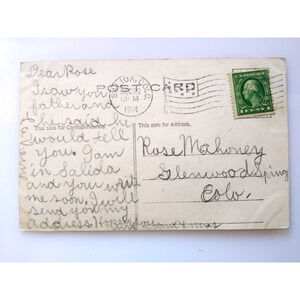 Dear Rose
I saw your
father and
he said he
would tell
you. I am
in Salida
and you write
me soon. I will
send you my
address.
POST CARD
12-M
1914
This side for Correspondence.
This side for Address.
Rose Mahoney
Glenwood Spring
Colo.